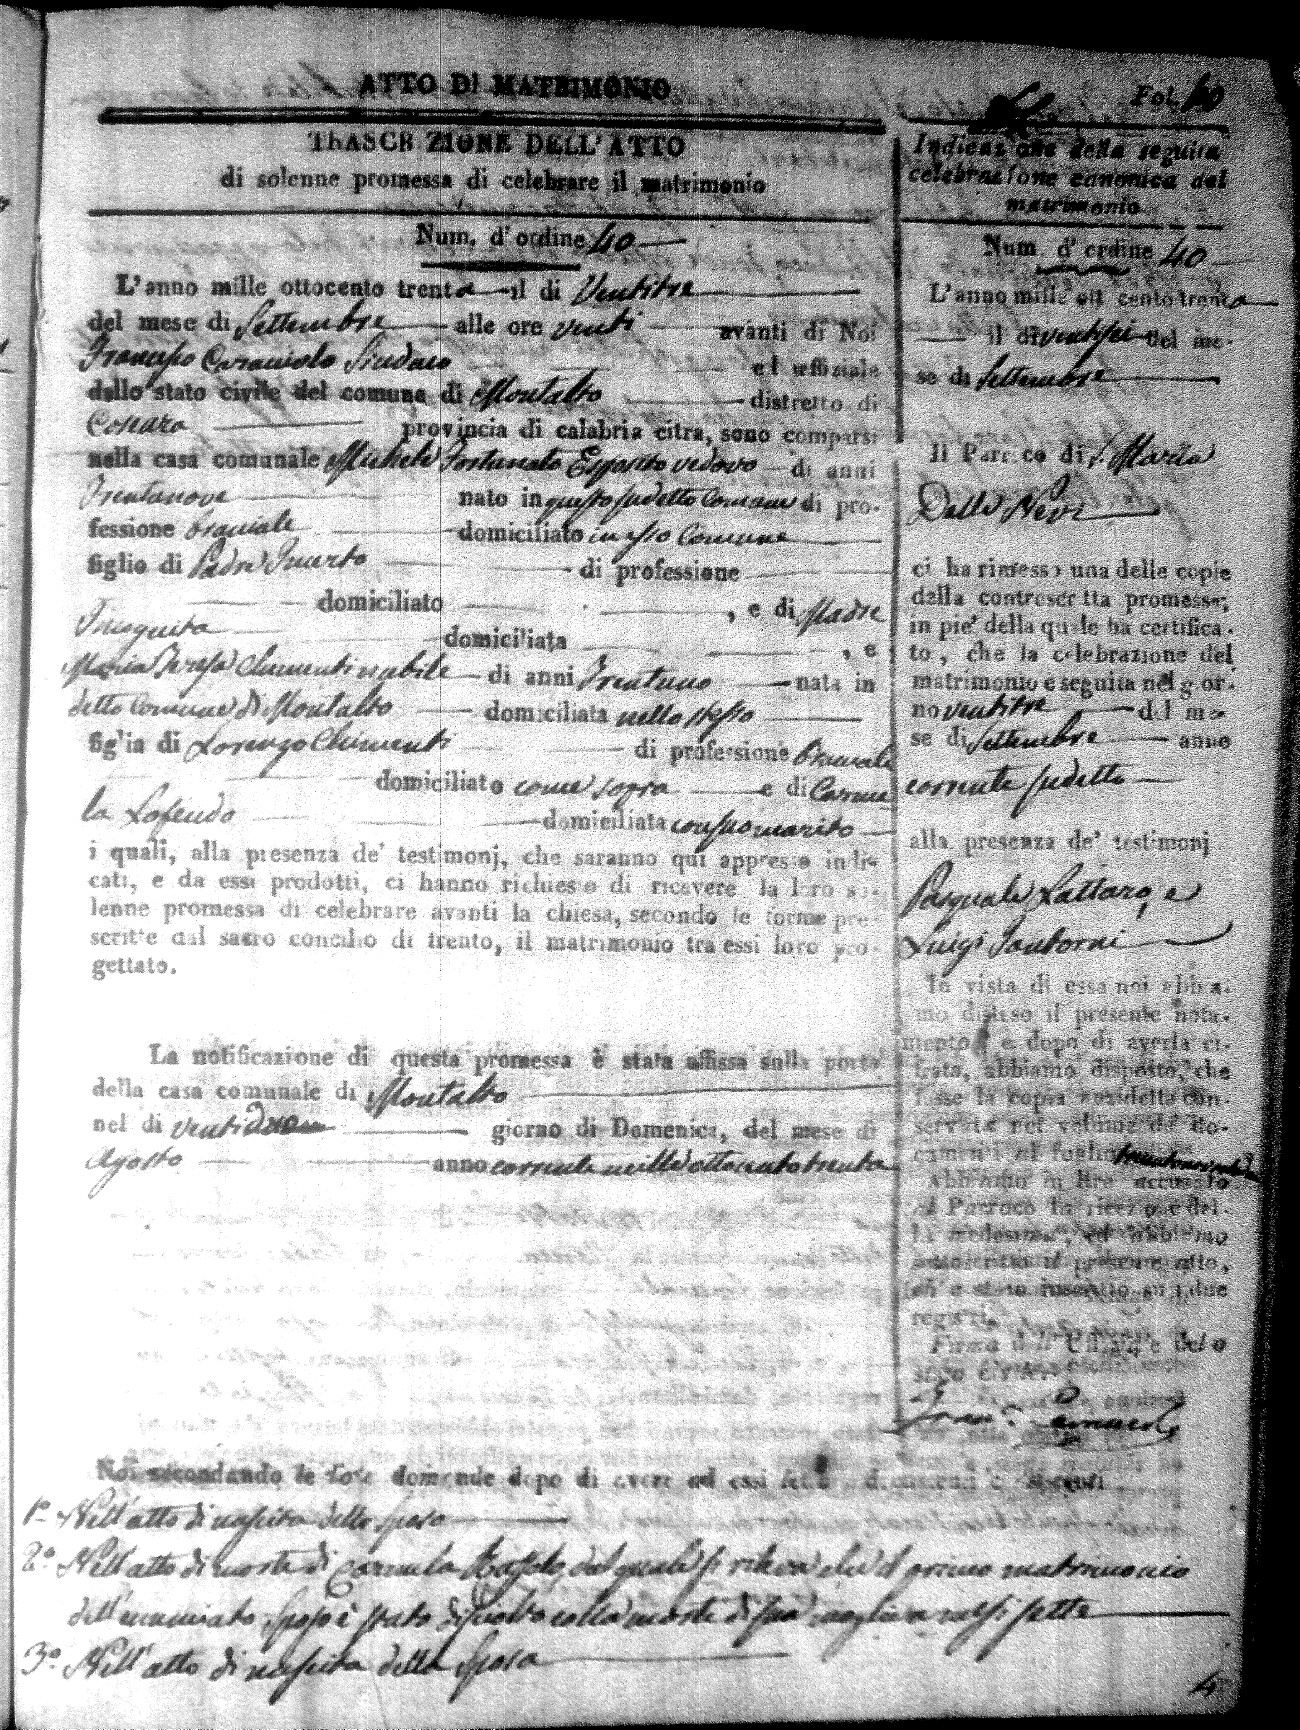 ATTO DI MATRIMONIO
Fol. 40
TRASCRIZIONE DELL'ATTO
di solenne promessa di celebrare il matrimonio
Num. d'ordine 40
L'anno mille ottocento trenta il di Ventitre
del mese di Settembre alle ore venti avanti di Noi
Francesco Caracciolo Sindaco ed uffiziale
dello stato civile del comune di Montalto distretto di
Cosenza provincia di calabria citra, sono comparsi
nella casa comunale Michele Fortunato Esposito vedovo di anni
Trentanove nato in questo sudetto Comune di pro-
fessione braciale domiciliato in esso Comune
figlio di Padre Incerto di professione
domiciliato , e di Madre
Incognita domiciliata , e
Maria Teresa Chimenti nubile di anni Trentuno nata in
detto Comune di Montalto domiciliata nello stesso
figlia di Lorenzo Chimenti di professione Braciale
domiciliato come sopra e di Carme
la Lofendo domiciliata con suo marito
i quali, alla presenza de' testimonj, che saranno qui appresso indi-
cati, e da essi prodotti, ci hanno richiesto di ricevere la loro so-
lenne promessa di celebrare avanti la chiesa, secondo le forme pre-
scritte dal sacro concilio di trento, il matrimonio tra essi loro pro-
gettato.
La notificazione di questa promessa è stata affissa sulla porta
della casa comunale di Montalto
nel di ventidue giorno di Domenica, del mese di
Agosto anno corrente mille ottocento trenta
Indicazione della seguita
celebrazione canonica del
matrimonio
Num. d'ordine 40
L'anno mille ottocento trenta
il di ventisei del me-
se di Settembre
Il Parroco di S. Maria
Della Neve
ci ha rimesso una delle copie
della controscritta promessa;
in pie' della quale ha certifica-
to, che la celebrazione del
matrimonio è seguita nel gior-
no ventitre del me-
se di Settembre anno
corrente sudetto
alla presenza de' testimonj
Pasquale Lattaro, e
Luigi Santorni
In vista di essa noi abbia-
mo disteso il presente nota-
mento, e dopo di averla ci-
frata, abbiamo disposto, che
fosse la copia anzidetta con-
servata nel volume de' do-
cumenti al foglio
Abbiamo in oltre accusato
al Parroco la ricezione del-
la medesima, ed abbiamo
il presente atto,
ch' è stato inscritto su i due
registri.
Noi secondando le loro domande dopo di avere ad essi
1° Nell'atto di nascita dello sposo
2° Nell'atto di morte di Carmela dal quale si rileva che il primo matrimonio
dell'enunciato sposo è stato disciolto colla morte di sua moglie a
3° Nell'atto di nascita della sposa